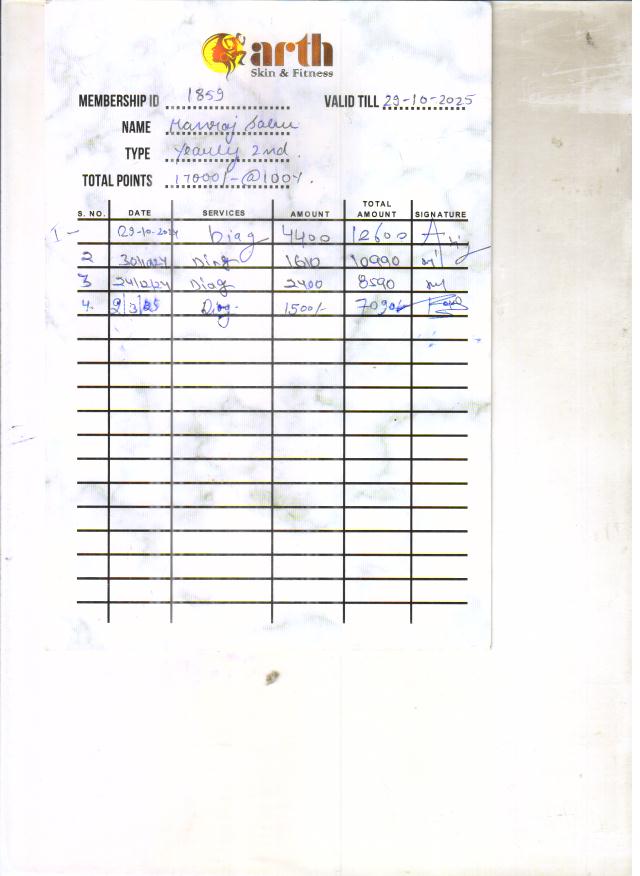 arth
Skin & Fitness
MEMBERSHIP ID 1859 VALID TILL 29-10-2025
NAME Hanraj
TYPE Yearly 2nd.
TOTAL POINTS 17000/- @100%.
S. NO. DATE SERVICES AMOUNT TOTAL AMOUNT SIGNATURE
1- 29-10-2024 Diag 4400 12600
2 Diag 1610 10990
3 24/12/24 Diag 2400 8590
4. 2/3/25 Diag. 1500/- 7090/-